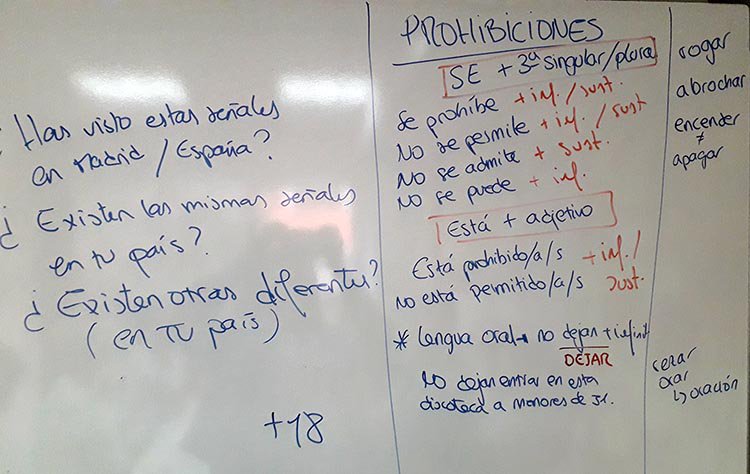 ¿ Has visto estas señales
en Madrid / España?
¿ Existen las mismas señales
en tu país?
¿ Existen otras diferentes?
(en TU país)
+18
PROHIBICIONES
SE + 3ª singular/plural
Se prohíbe + inf. / sust.
No se permite + inf. / sust
No se admite + sust.
No se puede + inf.
Está + adjetivo
Está prohibido/a/s + inf./
no está permitido/a/s sust.
* Lengua oral → no dejan + infinit
DEJAR
No dejan entrar en esta
discoteca a menores de
abrochar
encender
≠
apagar
rezar
orar
↳ oración